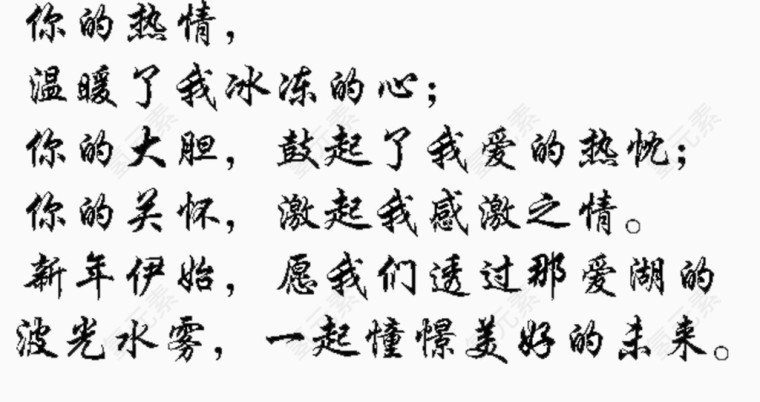 你的热情，
温暖了我冰冻的心；
你的大胆，鼓起了我爱的热忱；
你的关怀，激起我感激之情。
新年伊始，愿我们透过那爱湖的
波光水雾，一起憧憬美好的未来。